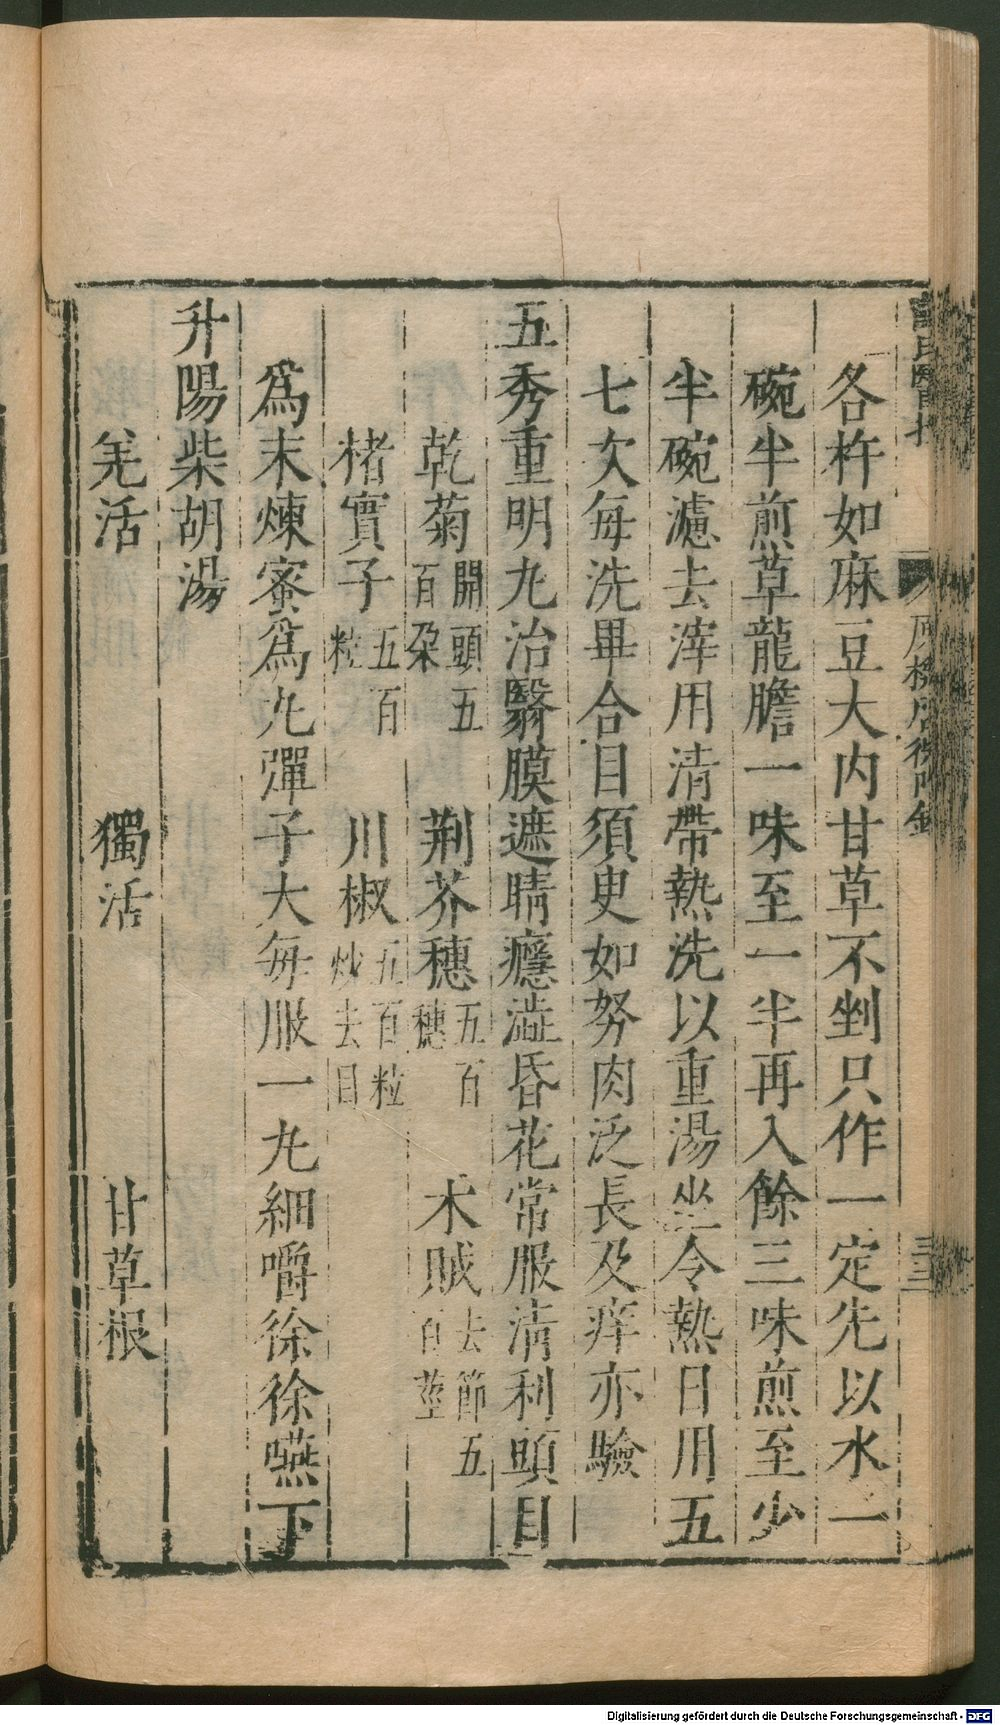 各杵如麻豆大内甘草不剉只作一定先以水一
碗半煎草龍膽一味至一半再入餘三味煎至少
半碗濾去滓用清帶熱洗以重湯坐令熱日用五
七次每洗畢合目須臾如努肉泛長及痒亦驗
五秀重明丸治翳膜遮睛癮澁昏花常服清利頭目
乾菊開頭五百朶 荆芥穗五百穗 木賊去節五百莖
楮實子五百粒 川椒五百粒炒去目
爲末煉蜜爲丸彈子大每服一丸細嚼徐徐嚥下
升陽柴胡湯
羌活 獨活 甘草根
Digitalisierung gefördert durch die Deutsche Forschungsgemeinschaft - DFG